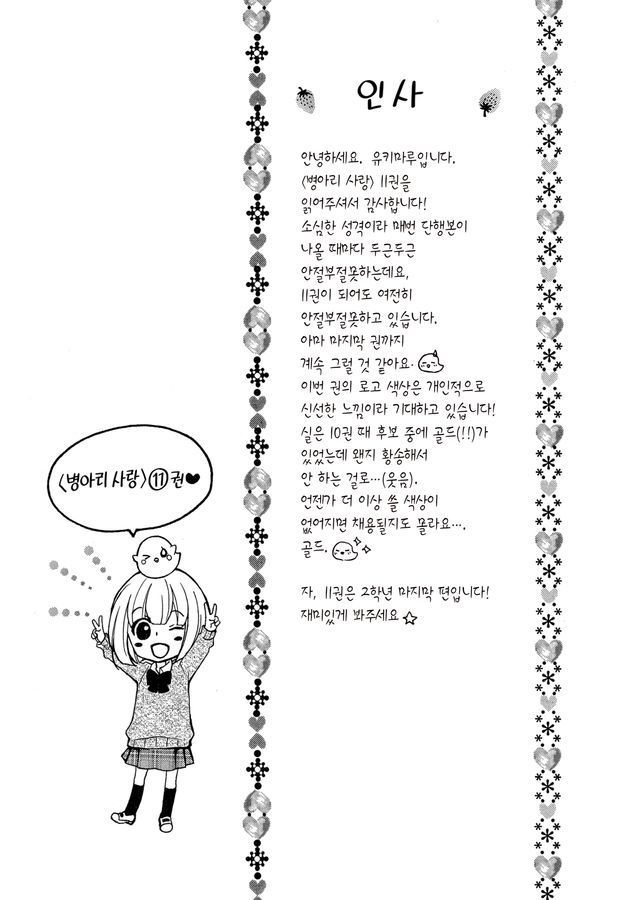 인사
안녕하세요. 유키마루입니다.
<병아리 사랑> 11권을
읽어주셔서 감사합니다!
소심한 성격이라 매번 단행본이
나올 때마다 두근두근
안절부절못하는데요,
11권이 되어도 여전히
안절부절못하고 있습니다.
아마 마지막 권까지
계속 그럴 것 같아요.
이번 권의 로고 색상은 개인적으로
신선한 느낌이라 기대하고 있습니다!
실은 10권 때 후보 중에 골드(!!)가
있었는데 왠지 황송해서
안 하는 걸로…(웃음).
언젠가 더 이상 쓸 색상이
없어지면 채용될지도 몰라요….
골드.
자, 11권은 2학년 마지막 편입니다!
재미있게 봐주세요☆
<병아리 사랑>⑪권♥